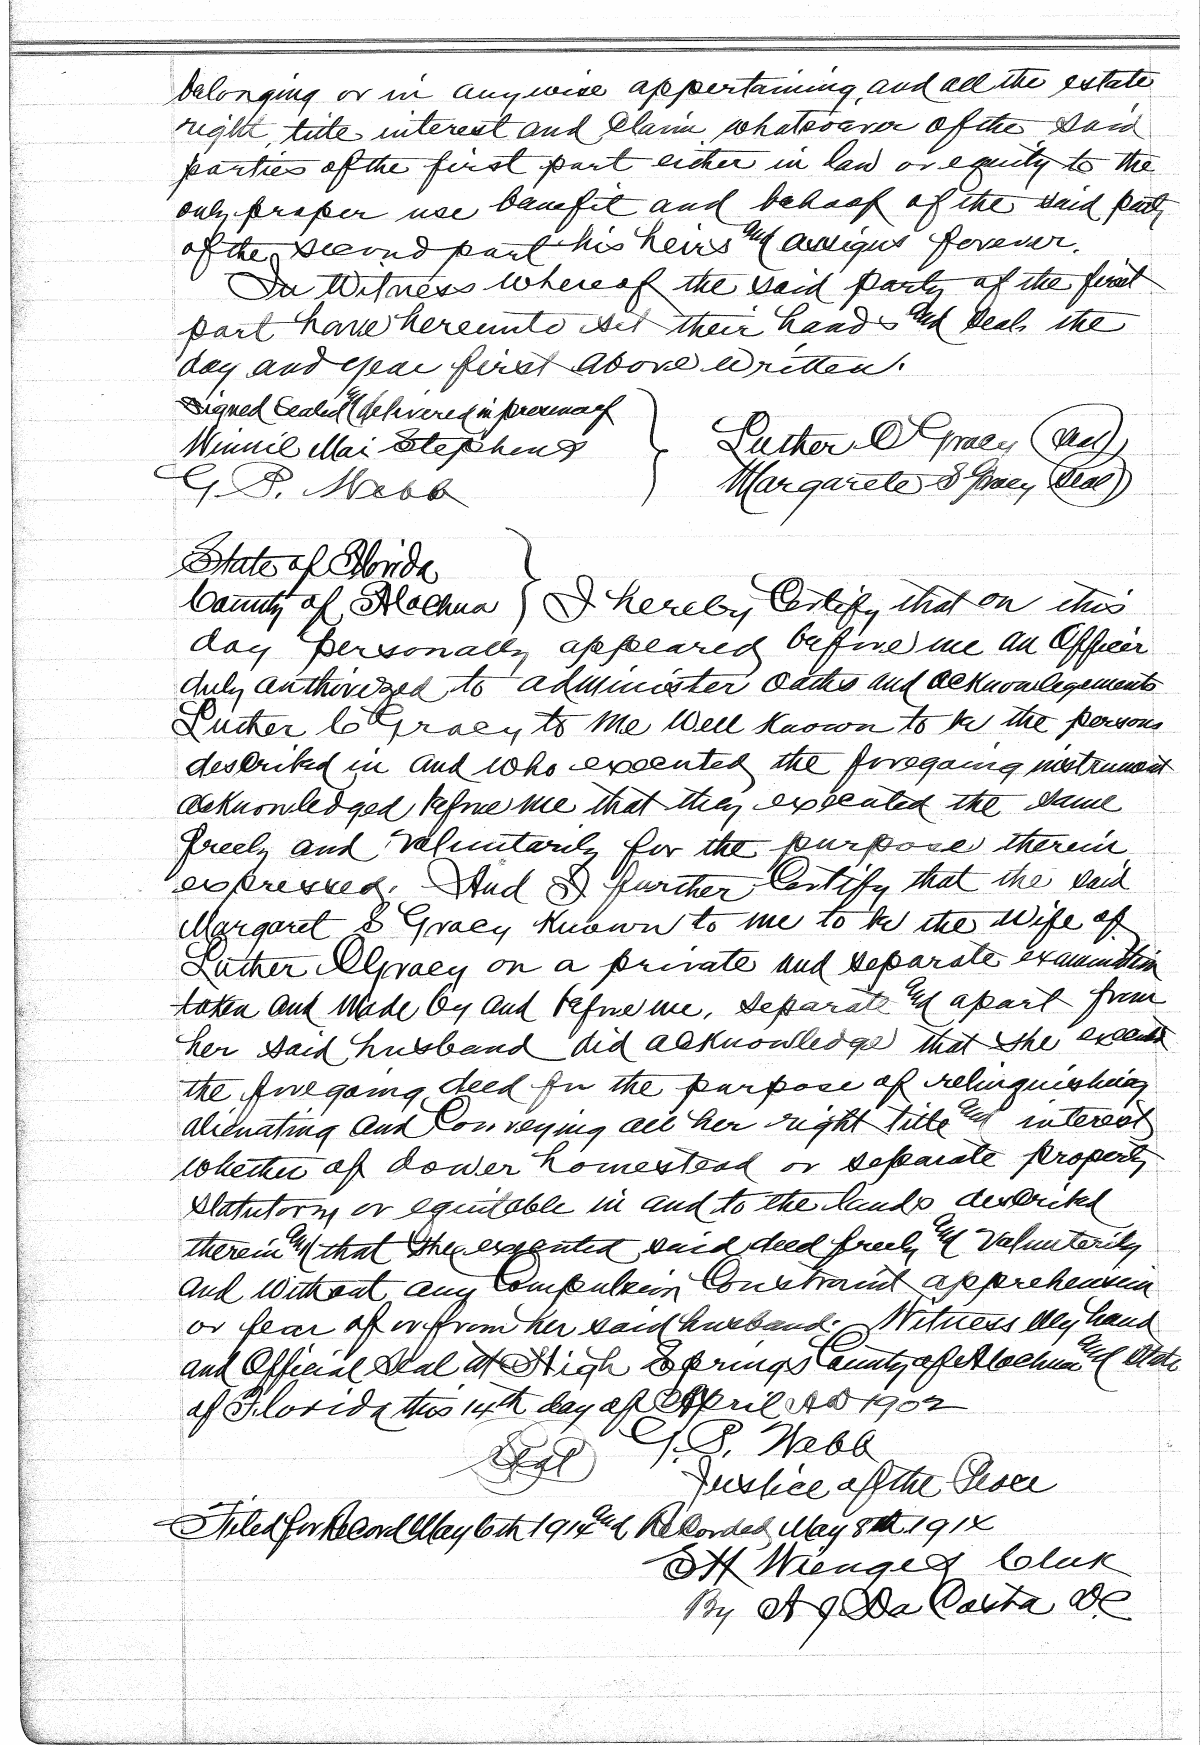 belonging or in anywise appertaining, and all the estate
right, title interest and claim whatsoever of the said
parties of the first part either in law or equity to the
only proper use benefit and behoof of the said party
of the second part his heirs and assigns forever.
In Witness whereof the said party of the first
part have hereunto set their hands and seals the
day and year first above written.
Signed Sealed and delivered in presence of
Winnie Mai Stephens
G. P. Webb
Luther C Gracy (seal)
Margarete S Gracy (seal)
State of Florida
County of Alachua } I hereby Certify that on this
day personally appeared before me an Officer
duly authorized to administer oaths and acknowlegements
Luther C Gracy to me well known to be the persons
described in and who executed the foregoing instrument
acknowledged before me that they executed the same
freely and voluntarily for the purpose therein
expressed. And I further Certify that the said
Margaret S Gracy known to me to be the wife of
Luther C Gracy on a private and separate examination
taken and made by and before me, separate and apart from
her said husband did acknowledge that she executed
the foregoing deed for the purpose of relinquishing
alienating and Conveying all her right title and interest
whether of dower homestead or separate property
statutory or equitable in and to the lands described
therein and that she executed said deed freely and Volunterily
and without any Compulsion Constraint apprehension
or fear of or from her said husband. Witness My hand
and Official Seal at High Springs County of Alachua and State
of Florida this 14th day of April AD 1902
G. P. Webb
Seal
Justice of the Peace
Filed for Record May 6th 1914 and Recorded May 8th 1914
S H Wienges Clerk
By A J Da Costa D.C